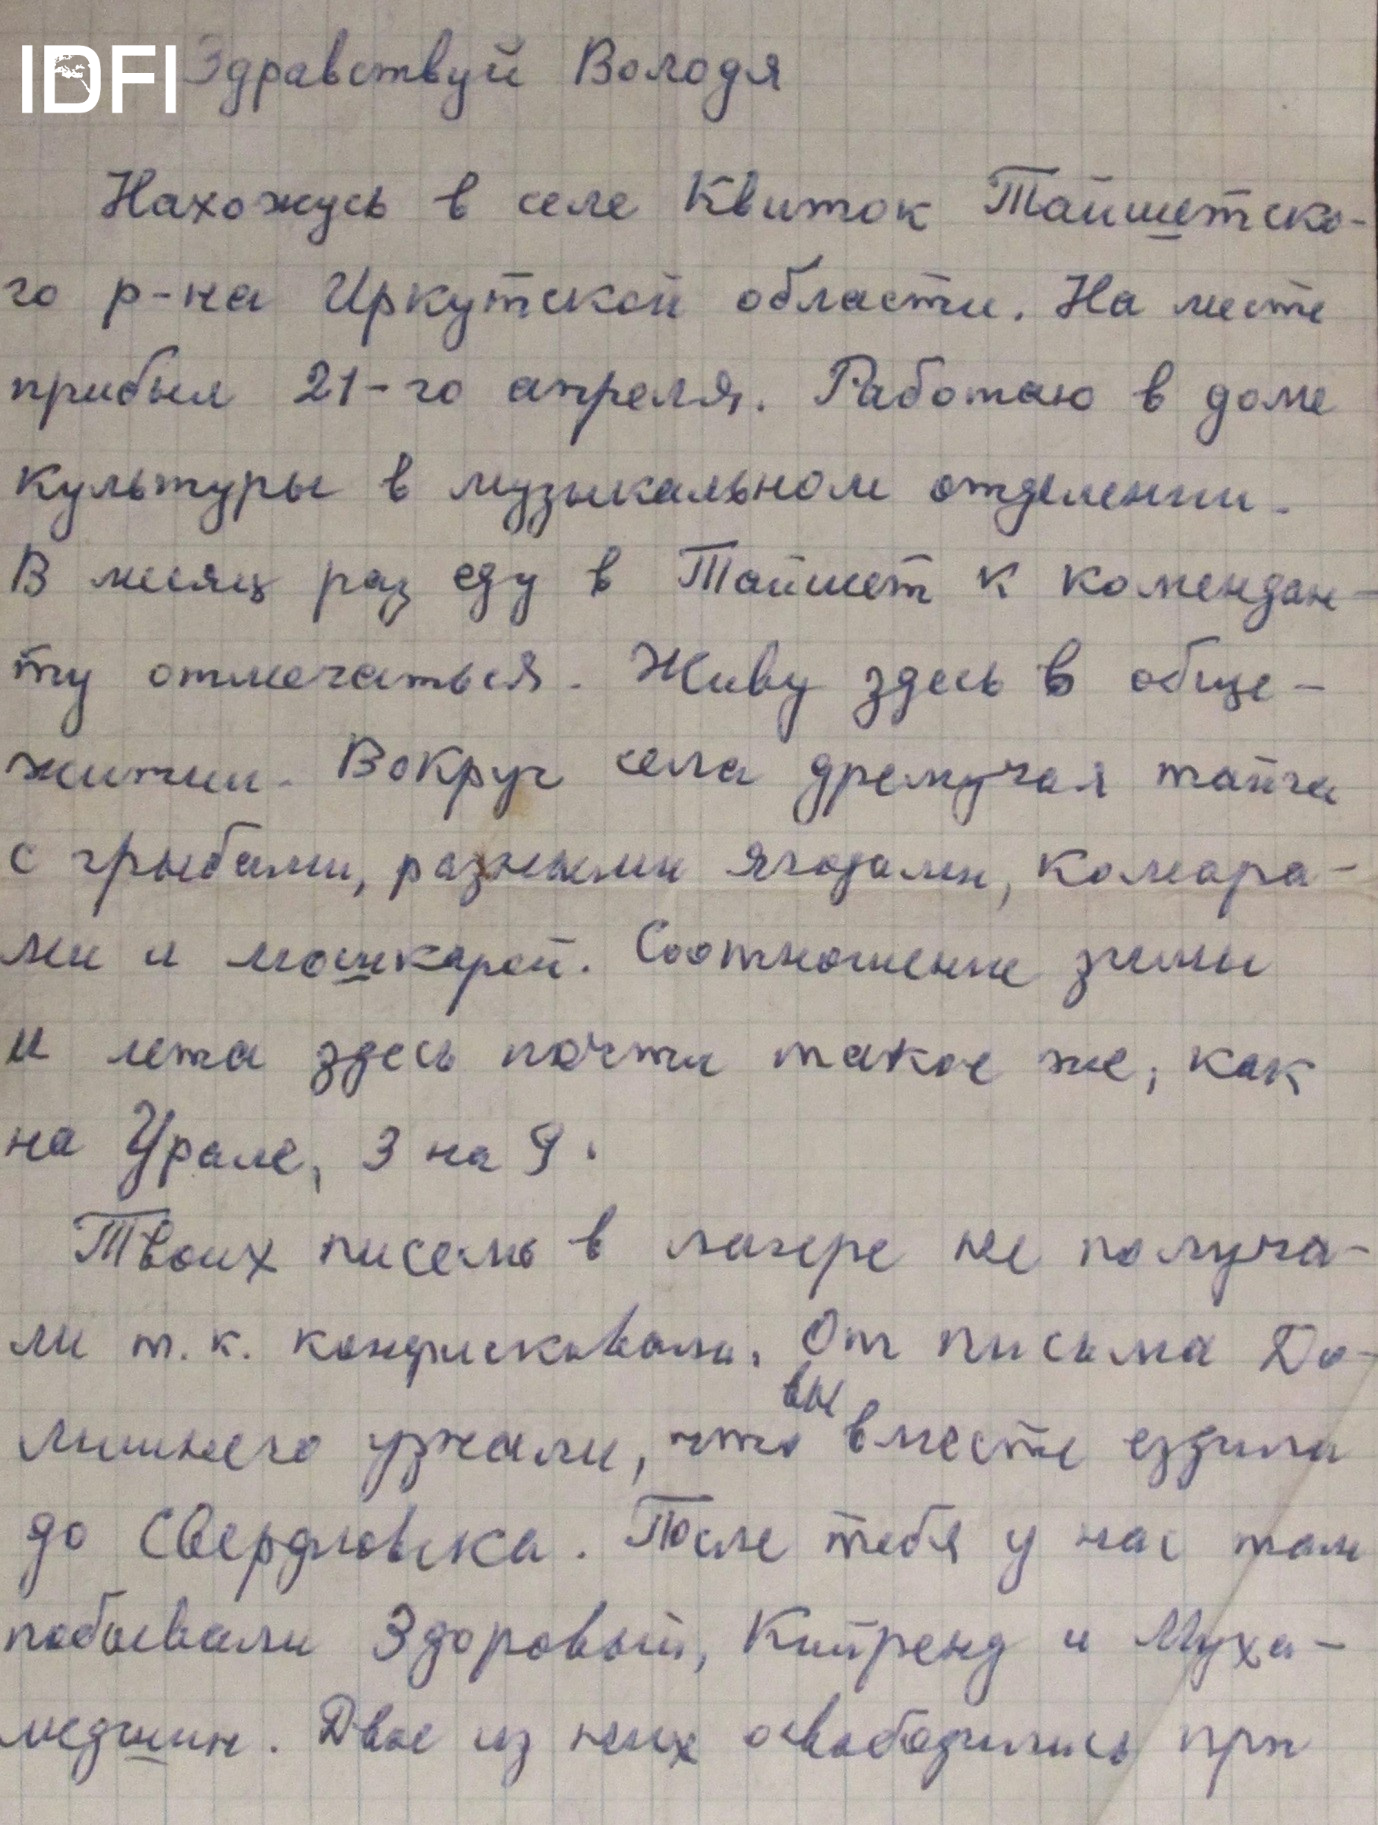 IDFI
Здравствуй Володя
Нахожусь в селе Квиток Тайшетско-
го р-на Иркутской области. На месте
прибыл 21-го апреля. Работаю в доме
культуры в музыкальном отделении.
В месяц раз еду в Тайшет к комендан-
ту отмечаться. Живу здесь в обще-
житии. Вокруг села дремучая тайга
с грыбами, разными ягодами, комара-
ми и мошкарой. Соотношение зимы
и лета здесь почти такое же, как
на Урале, 3 на 9.
Твоих писем в лагере не получа-
ли т. к. конфисковали. От письма До-
лишнего узнали, что вы вместе ездили
до Свердловска. После тебя у нас там
побывали Здоровый, Кийренд и Муха-
медшин. Двое из них освободились при